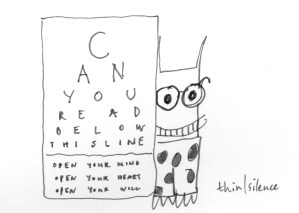 C
A N
Y O U
R E A D
B E L O W
T H I S L I N E
OPEN YOUR MIND
OPEN YOUR HEART
OPEN YOUR WILL
thin/silence